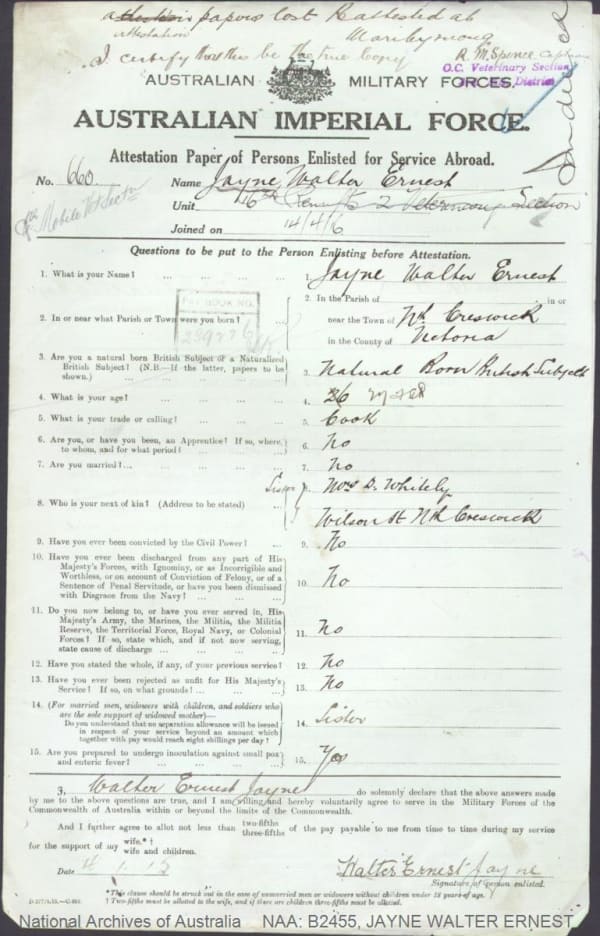 papers lost Reattested at
attestation Maribyrnong
I certify this to be the true Copy R. M. Spence Captain
O.C. Veterinary Section
District
AUSTRALIAN MILITARY FORCES.
AUSTRALIAN IMPERIAL FORCE.
Attestation Paper of Persons Enlisted for Service Abroad.
No. 660 Name Jayne, Walter Ernest
Mobile Vet Sectn Unit Section
Joined on 14/4/6
Questions to be put to the Person Enlisting before Attestation.
1. What is your Name? ... 1. Jayne Walter Ernest
PAY BOOK NO.
2. In or near what Parish or Town were you born? 2. In the Parish of in or
near the Town of Nth Creswick
in the County of Victoria
3. Are you a natural born British Subject or a Naturalized
British Subject? (N.B.—If the latter, papers to be
shown.) 3. Natural Born British Subject
4. What is your age? 4. 26
5. What is your trade or calling? 5. Cook
6. Are you, or have you been, an Apprentice? If so, where,
to whom, and for what period? 6. No
7. Are you married? 7. No
8. Who is your next of kin? (Address to be stated) Sister Mrs D. Whitely
Wilson St Nth Creswick
9. Have you ever been convicted by the Civil Power? 9. No
10. Have you ever been discharged from any part of His
Majesty's Forces, with Ignominy, or as Incorrigible and
Worthless, or on account of Conviction of Felony, or of a
Sentence of Penal Servitude, or have you been dismissed
with Disgrace from the Navy? 10. No
11. Do you now belong to, or have you ever served in, His
Majesty's Army, the Marines, the Militia, the Militia
Reserve, the Territorial Force, Royal Navy, or Colonial
Forces? If so, state which, and if not now serving,
state cause of discharge 11. No
12. Have you stated the whole, if any, of your previous service? 12. No
13. Have you ever been rejected as unfit for His Majesty's
Service? If so, on what grounds? 13. No
14. (For married men, widowers with children, and soldiers who
are the sole support of widowed mother)—
Do you understand that no separation allowance will be issued
in respect of your service beyond an amount which
together with pay would reach eight shillings per day? 14. Sister
15. Are you prepared to undergo inoculation against small pox
and enteric fever? 15. Yes
I, Walter Ernest Jayne do solemnly declare that the above answers made
by me to the above questions are true, and I am willing and hereby voluntarily agree to serve in the Military Forces of the
Commonwealth of Australia within or beyond the limits of the Commonwealth.
And I further agree to allot not less than two-fifths three-fifths of the pay payable to me from time to time during my service
for the support of my wife.*† wife and children.
Date Walter Ernest Jayne
Signature of person enlisted.
*This clause should be struck out in the case of unmarried men or widowers without children under 18 years of age.
†Two-fifths must be allotted to the wife, and if there are children three-fifths must be allotted.
National Archives of Australia NAA: B2455, JAYNE WALTER ERNEST